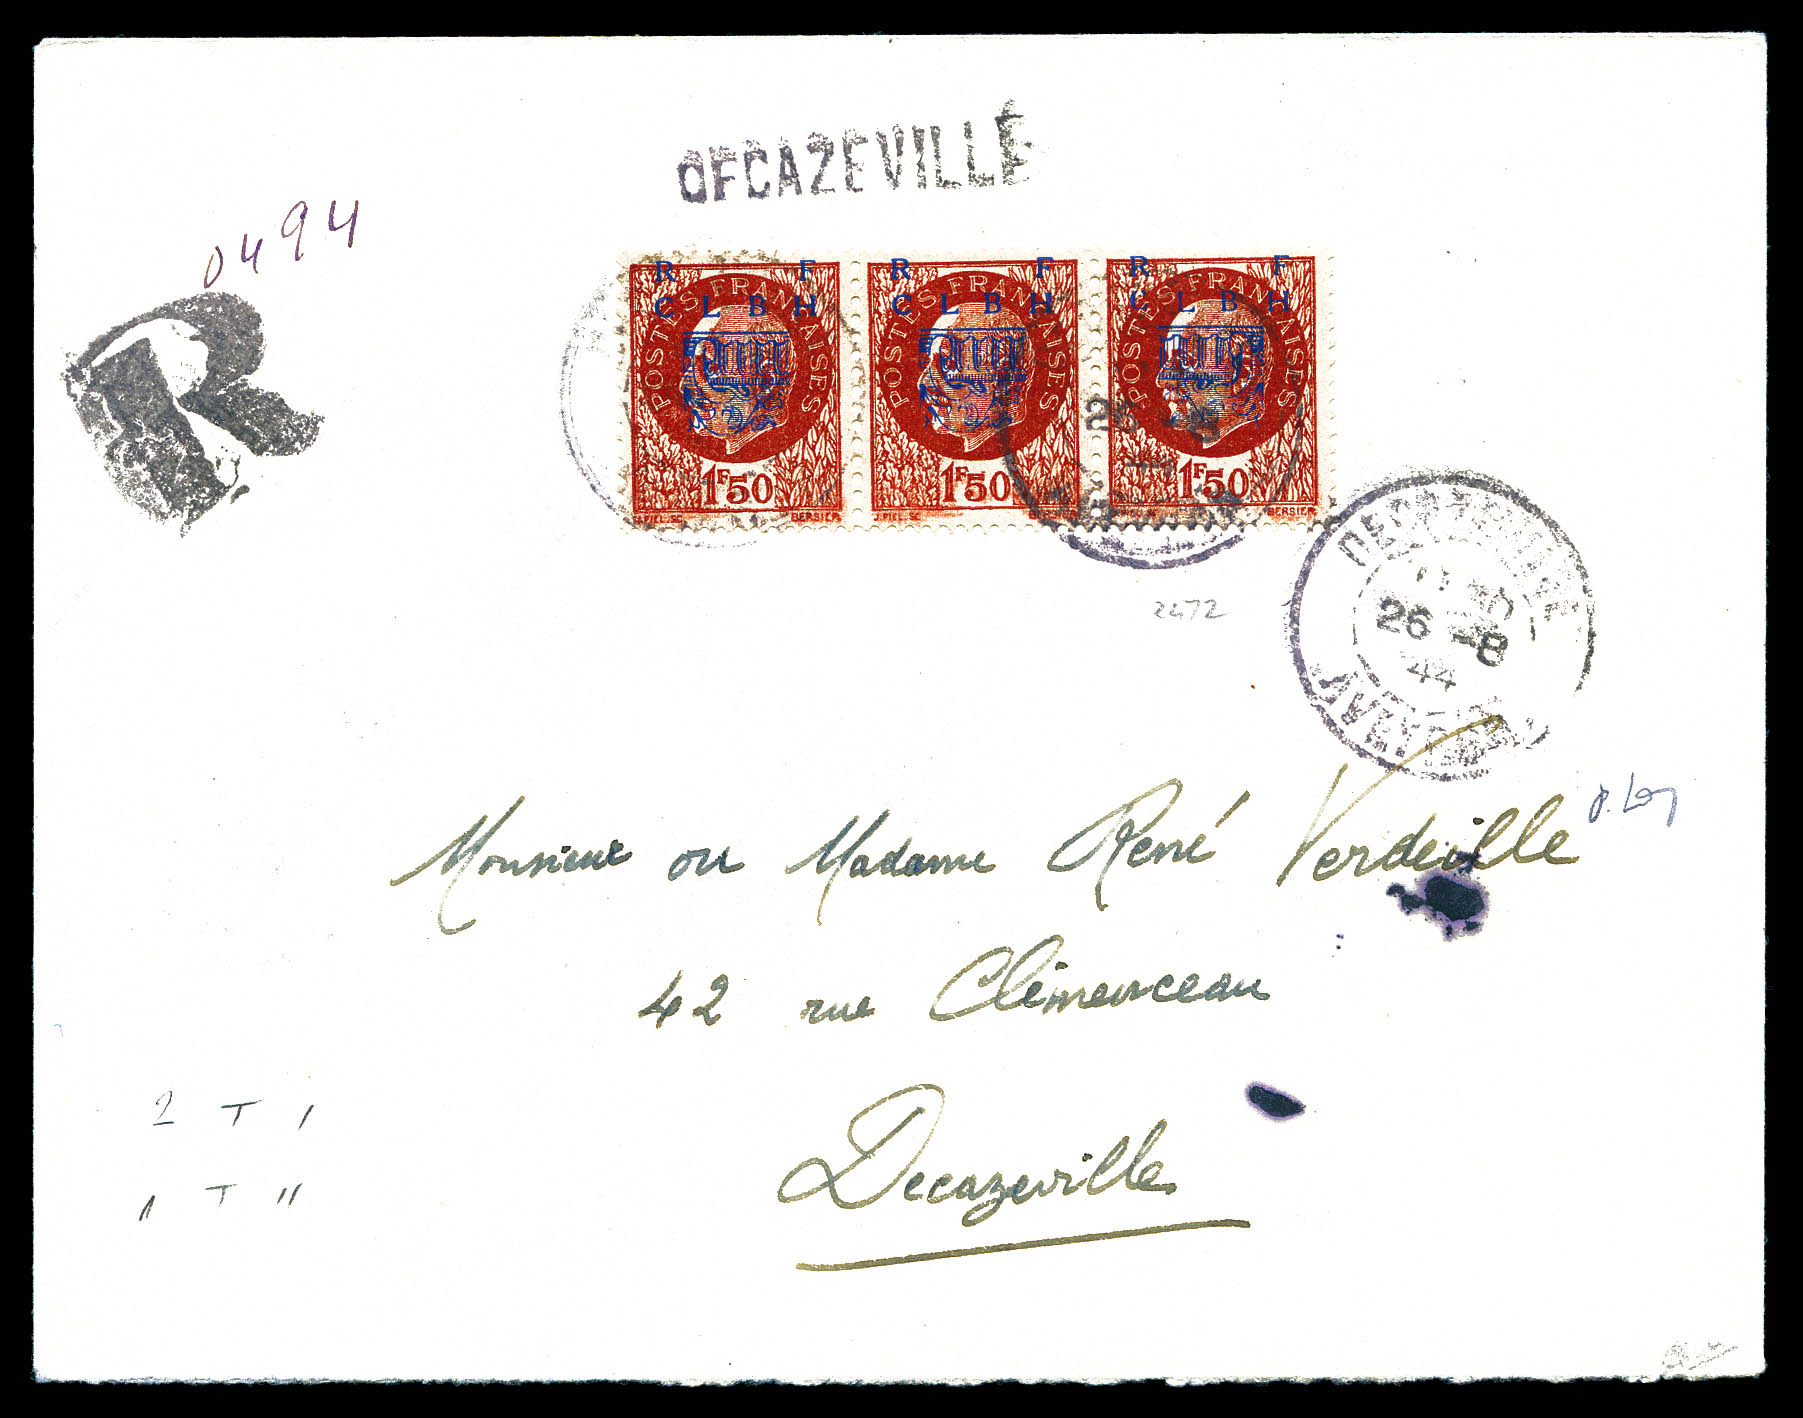 DECAZEVILLE
0494
R
R F R F R F
C L B H C L B H C L B H
POSTES FRANÇAISES POSTES FRANÇAISES POSTES FRANÇAISES
26 -8
1F50 1F50 1F50
J.PIEL.SC BERSIER J.PIEL.SC BERSIER BERSIER
2472
DECAZEVILLE
26 -8
44
AVEYRON
Monsieur ou Madame René Verdeille
42 rue Clémenceau
Decazeville
2 T I
1 T II